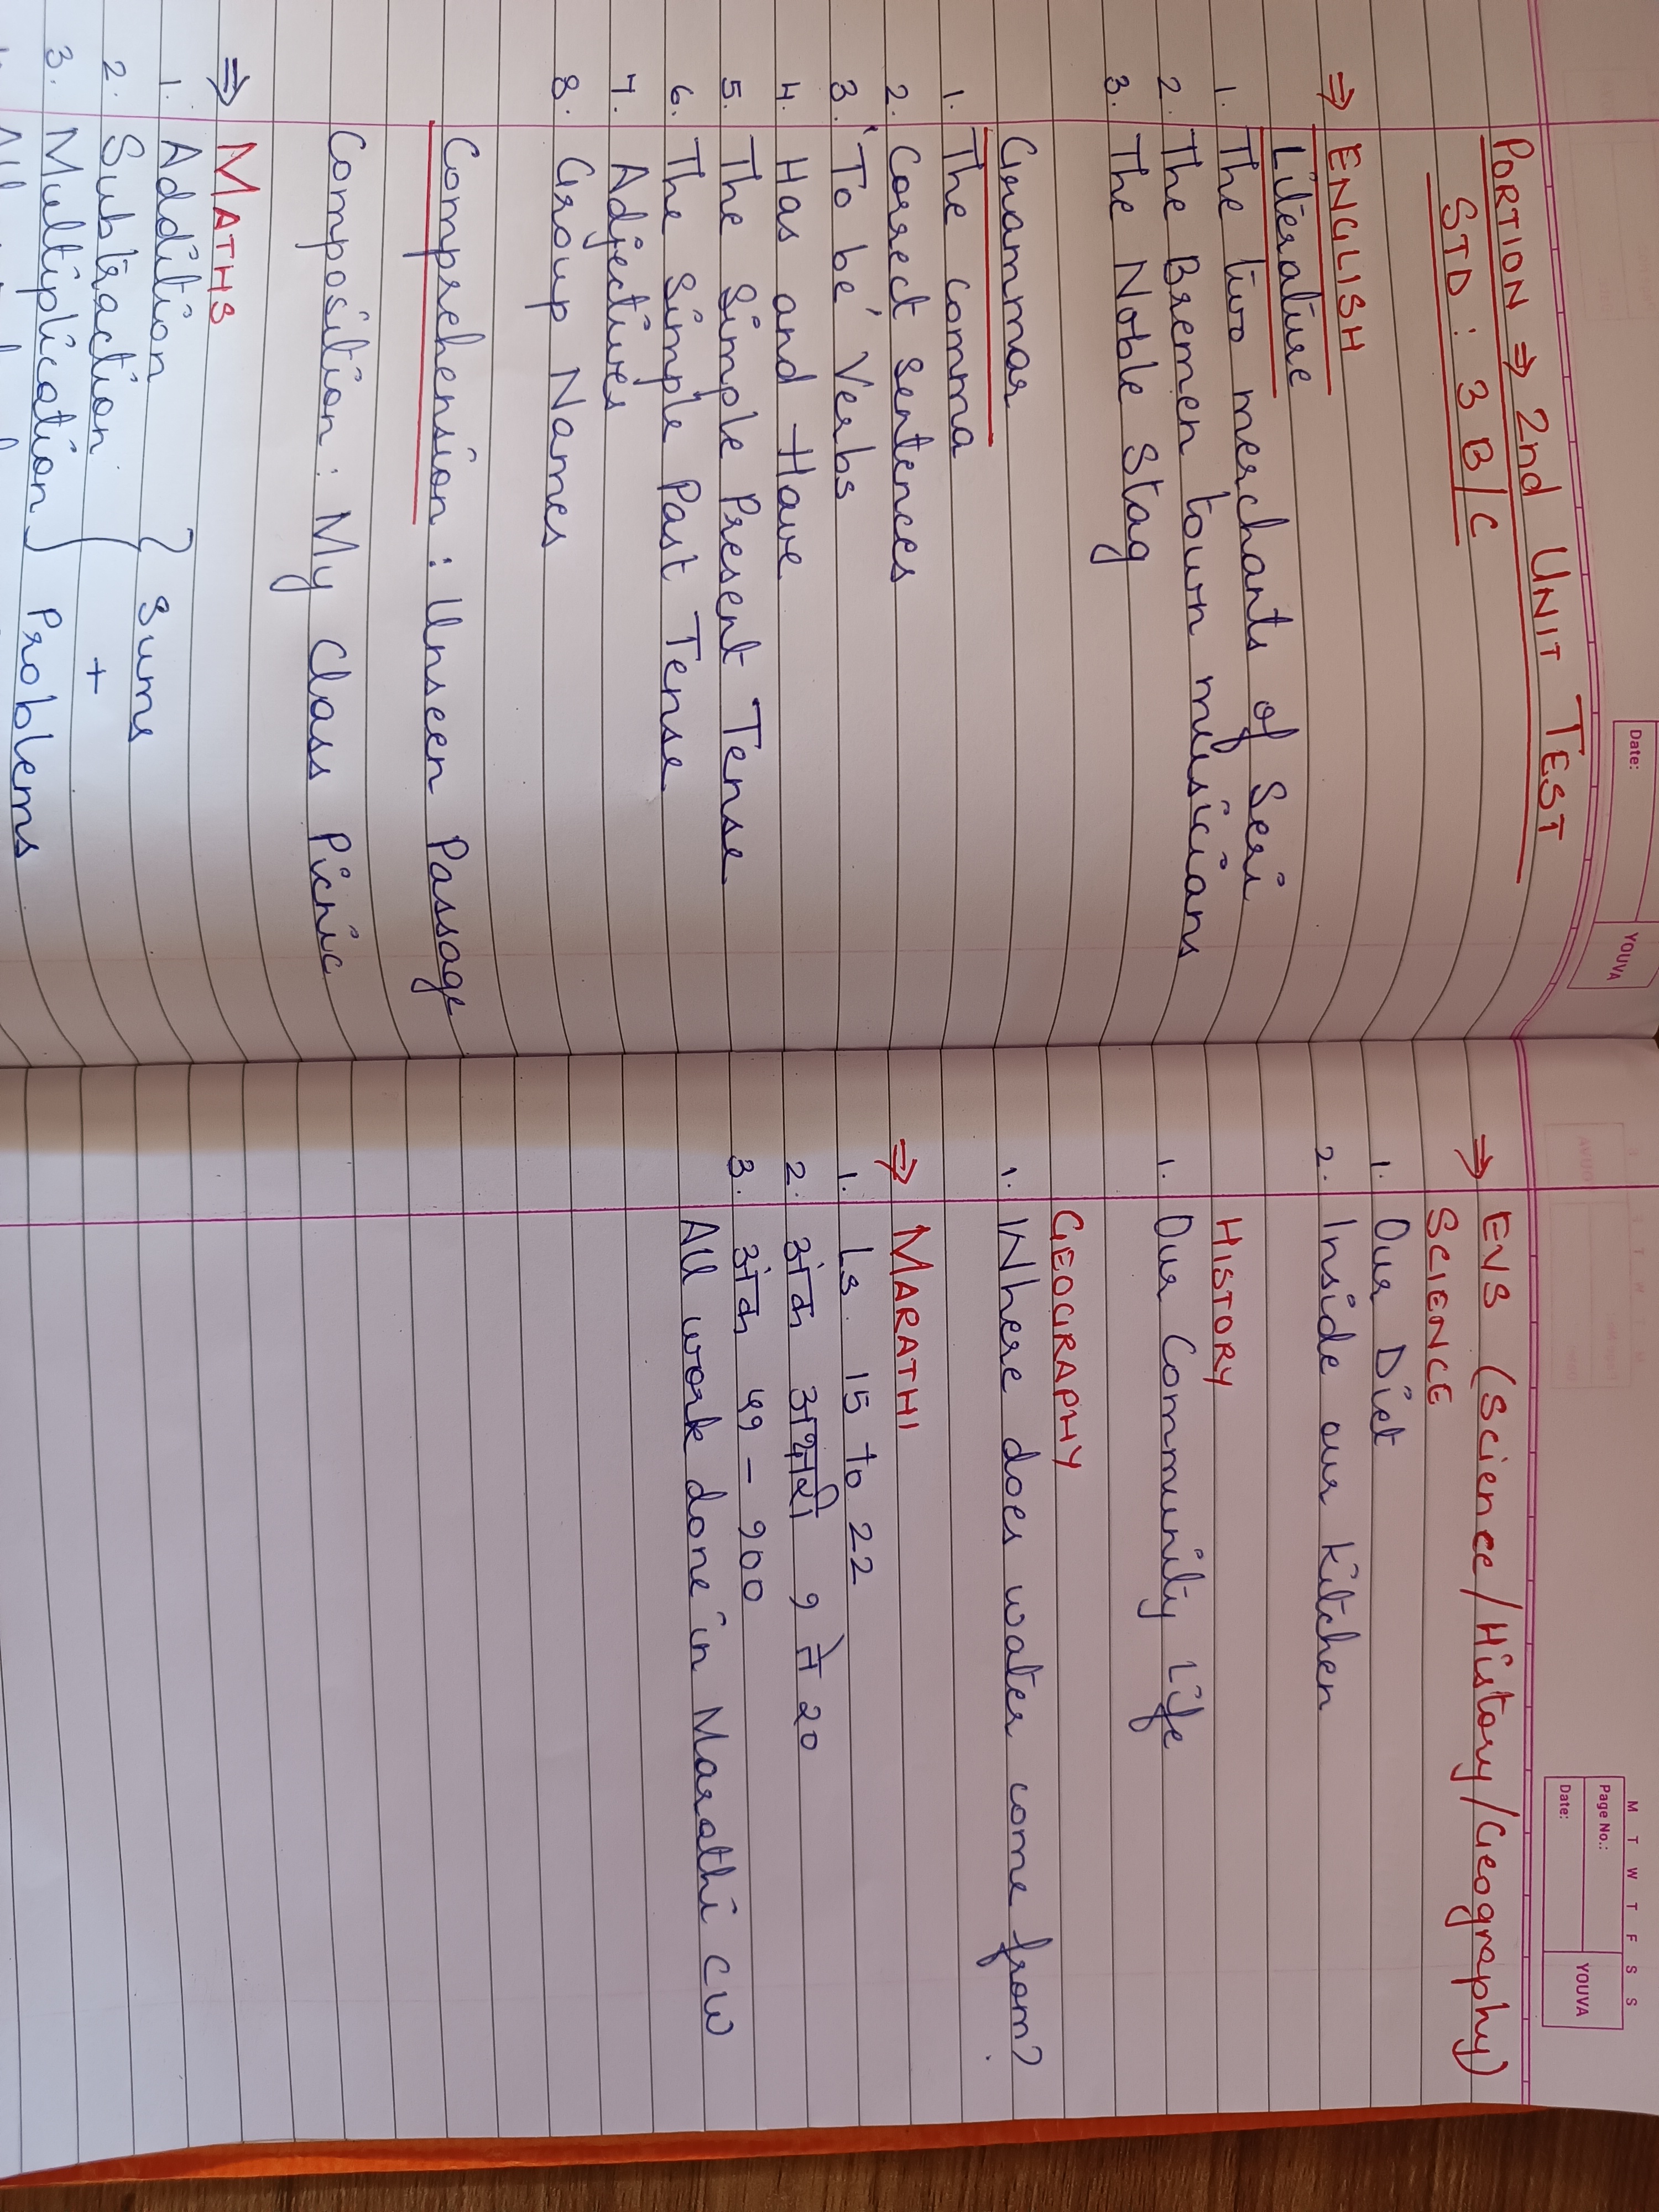 Date:
YOUVA
PORTION ⇒ 2nd UNIT TEST
STD : 3 B/C
⇒ ENGLISH
Literature
1. The two merchants of Seri
2. The Bremen town musicians
3. The Noble Stag
Grammar
1. The comma
2. Correct Sentences
3. 'To be' Verbs
4. Has and Have
5. The Simple Present Tense
6. The Simple Past Tense
7. Adjectives
8. Group Names
Comprehension : Unseen Passage
Composition : My Class Picnic
⇒ MATHS
1. Addition } Sums
2. Subtraction +
3. Multiplication Problems
M T W T F S S
Page No.:
Date:
YOUVA
⇒ EVS (Science/History/Geography)
SCIENCE
1. Our Diet
2. Inside our kitchen
HISTORY
1. Our Community Life
GEOGRAPHY
1. Where does water come from?
⇒ MARATHI
1. Ls 15 to 22
2. अंक अक्षरी १ ते २०
3. अंक ५१ - १००
All work done in Marathi CW